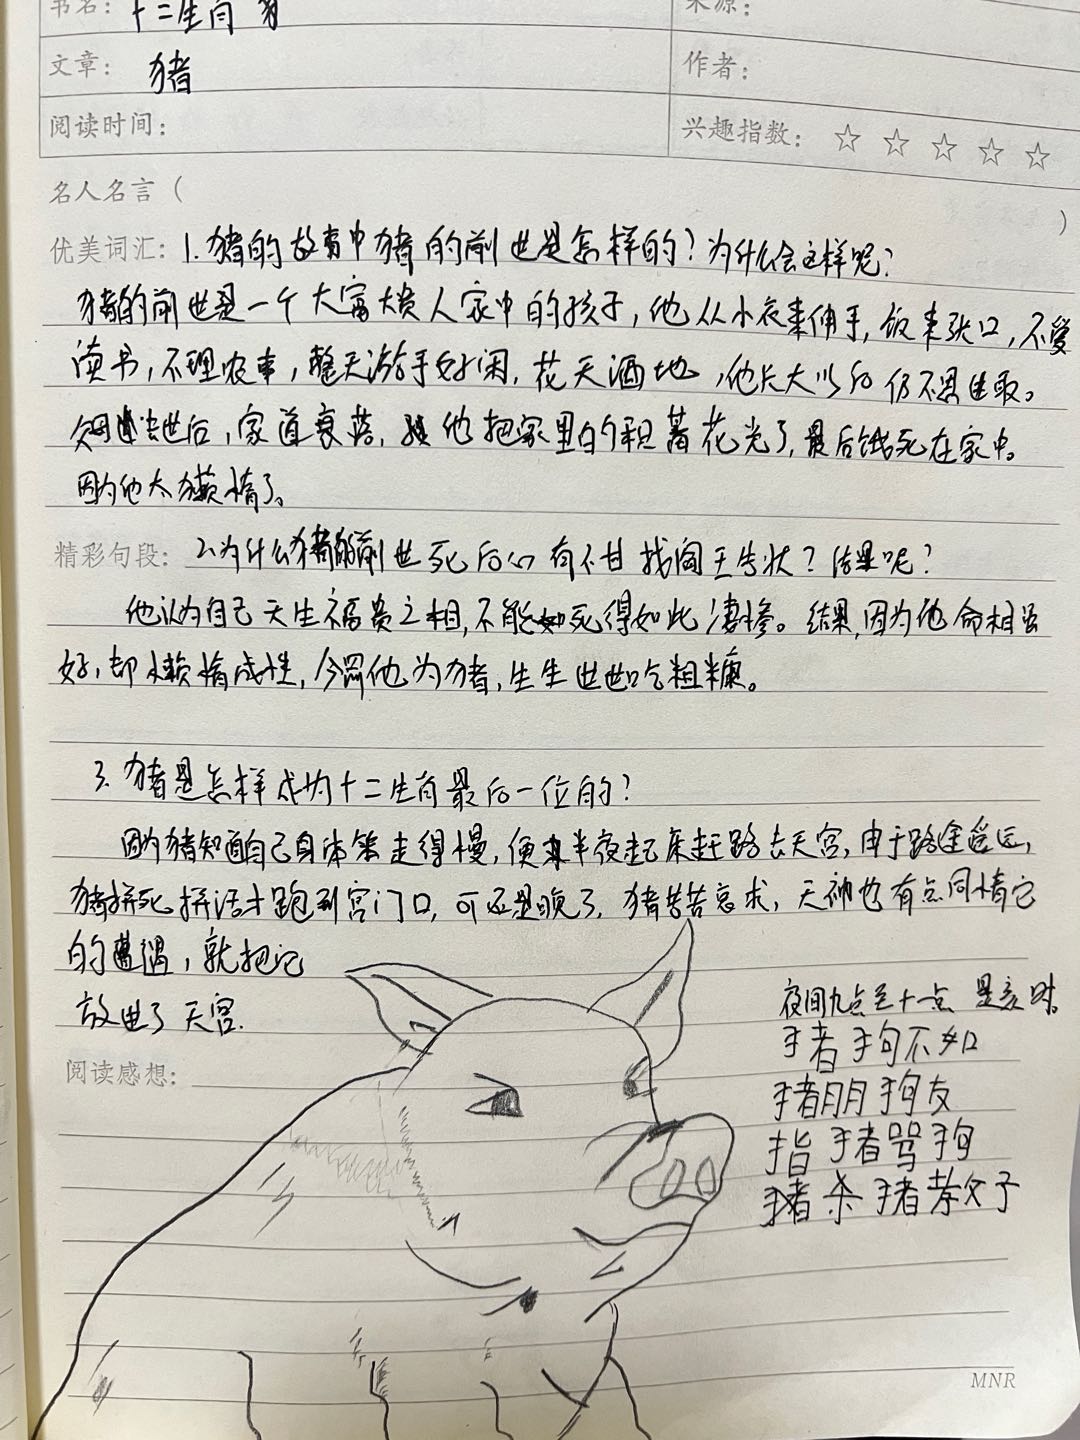 书名： 十二生肖
来源：
文章： 猪
作者：
阅读时间：
兴趣指数： ☆ ☆ ☆ ☆ ☆
名人名言（ ）
优美词汇： 1.猪的故事中猪的前世是怎样的？为什么会这样呢？
猪的前世是一个大富大贵人家中的孩子，他从小衣来伸手，饭来张口，不爱
读书，不理农事，整天游手好闲，花天酒地，他长大以后仍不思进取。
父母去世后，家道衰落，他把家里的积蓄花光了，最后饿死在家中。
因为他太懒惰了。
精彩句段： 2.为什么猪的前世死后心有不甘找阎王告状？结果呢？
他认为自己天生福贵之相，不能死得如此凄惨。结果，因为他命相虽
好，却懒惰成性，今罚他为猪，生生世世吃粗糠。
3.猪是怎样成为十二生肖最后一位的？
因为猪知道自己身体笨走得慢，便半夜起床赶路去天宫，由于路途遥远，
猪拼死拼活才跑到宫门口，可还是晚了，猪苦苦哀求，天神也有点同情它
的遭遇，就把它
放进了天宫.
夜间九点至十一点 是亥时。
猪狗不如
猪朋狗友
指猪骂狗
杀猪教子
阅读感想：
MNR